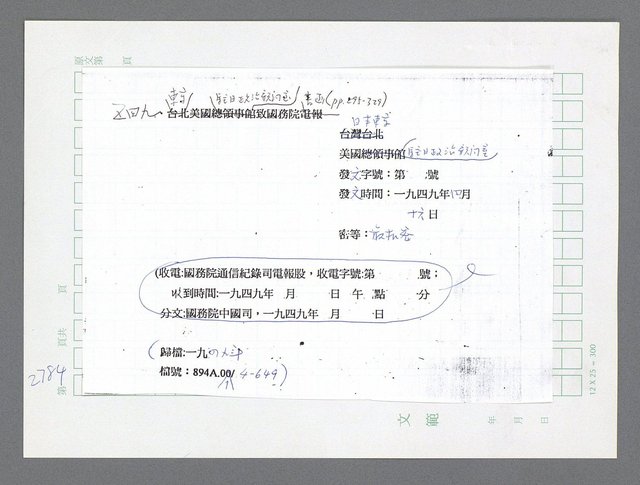 原文第　頁
東京 駐日政治顧問室 書函(pp.295-329)
五四九、台北美國總領事館致國務院電報
日本東京
台灣台北
美國總領事館 駐日政治顧問室
發文字號：第　號
發文時間：一九四九年四月
十六日
密等：最機密
(收電:國務院通信紀錄司電報股，收電字號:第　號；
收到時間:一九四九年　月　日　午　點　分
分文:國務院中國司，一九四九年　月　日
(歸檔:一九四九年
檔號：894A.00/4-649)
頁共　頁
第
2784
12 X 25 = 300
文範　年　月　日